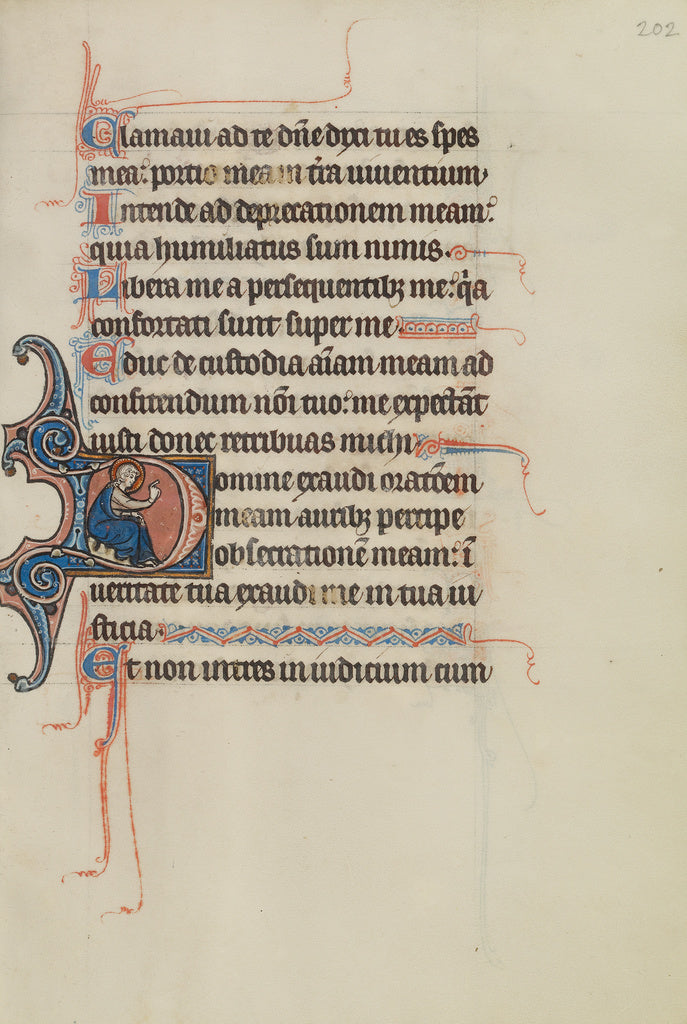 202
Clamaui ad te dn̄e dyxi tu es spes
mea: portio mea in t̄ra uiuentium
Intende ad deprecationem meam:
quia humiliatus sum nimis.
Libera me a persequentibꝫ me: qͥa
confortati sunt super me
Educ de custodia aīam meam ad
confitendum nōi tuo: me expectāt
iusti donec retribuas michi
Domine exaudi oratōem
meam auribꝫ percipe
obsecrationē meam: ī
ueritate tua exaudi me in tua iu
sticia.
Et non intres in iudicium cum